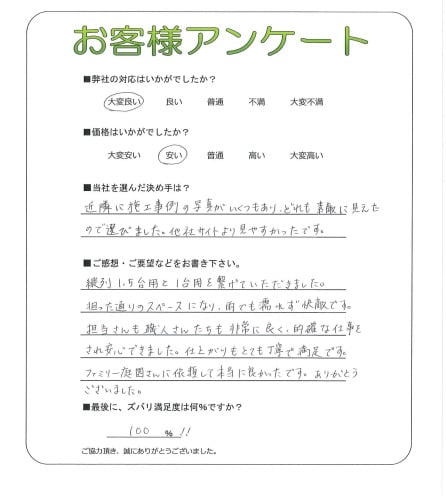 お客様アンケート
■弊社の対応はいかがでしたか?
大変良い 良い 普通 不満 大変不満
■価格はいかがでしたか?
大変安い 安い 普通 高い 大変高い
■当社を選んだ決め手は?
近隣に施工事例の写真がいくつもあり、どれも素敵に見えた
ので選びました。他社サイトより見やすかったです。
■ご感想・ご要望などをお書き下さい。
縦列1.5台用と1台用を繋げていただきました。
狙った通りのスペースになり、雨でも濡れず快敵です。
担当さんも職人さんたちも非常に良く、的確な仕事を
され安心できました。仕上がりもとても丁寧で満足です。
ファミリー庭園さんに依頼して本当に良かったです。ありがとう
ございました。
■最後に、ズバリ満足度は何%ですか?
100 % !!
ご協力頂き、誠にありがとうございました。